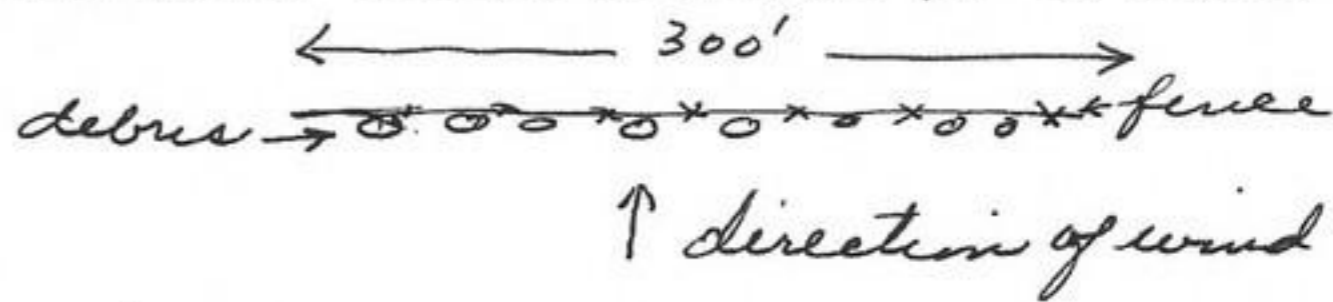 300'
debris
fence
direction of wind